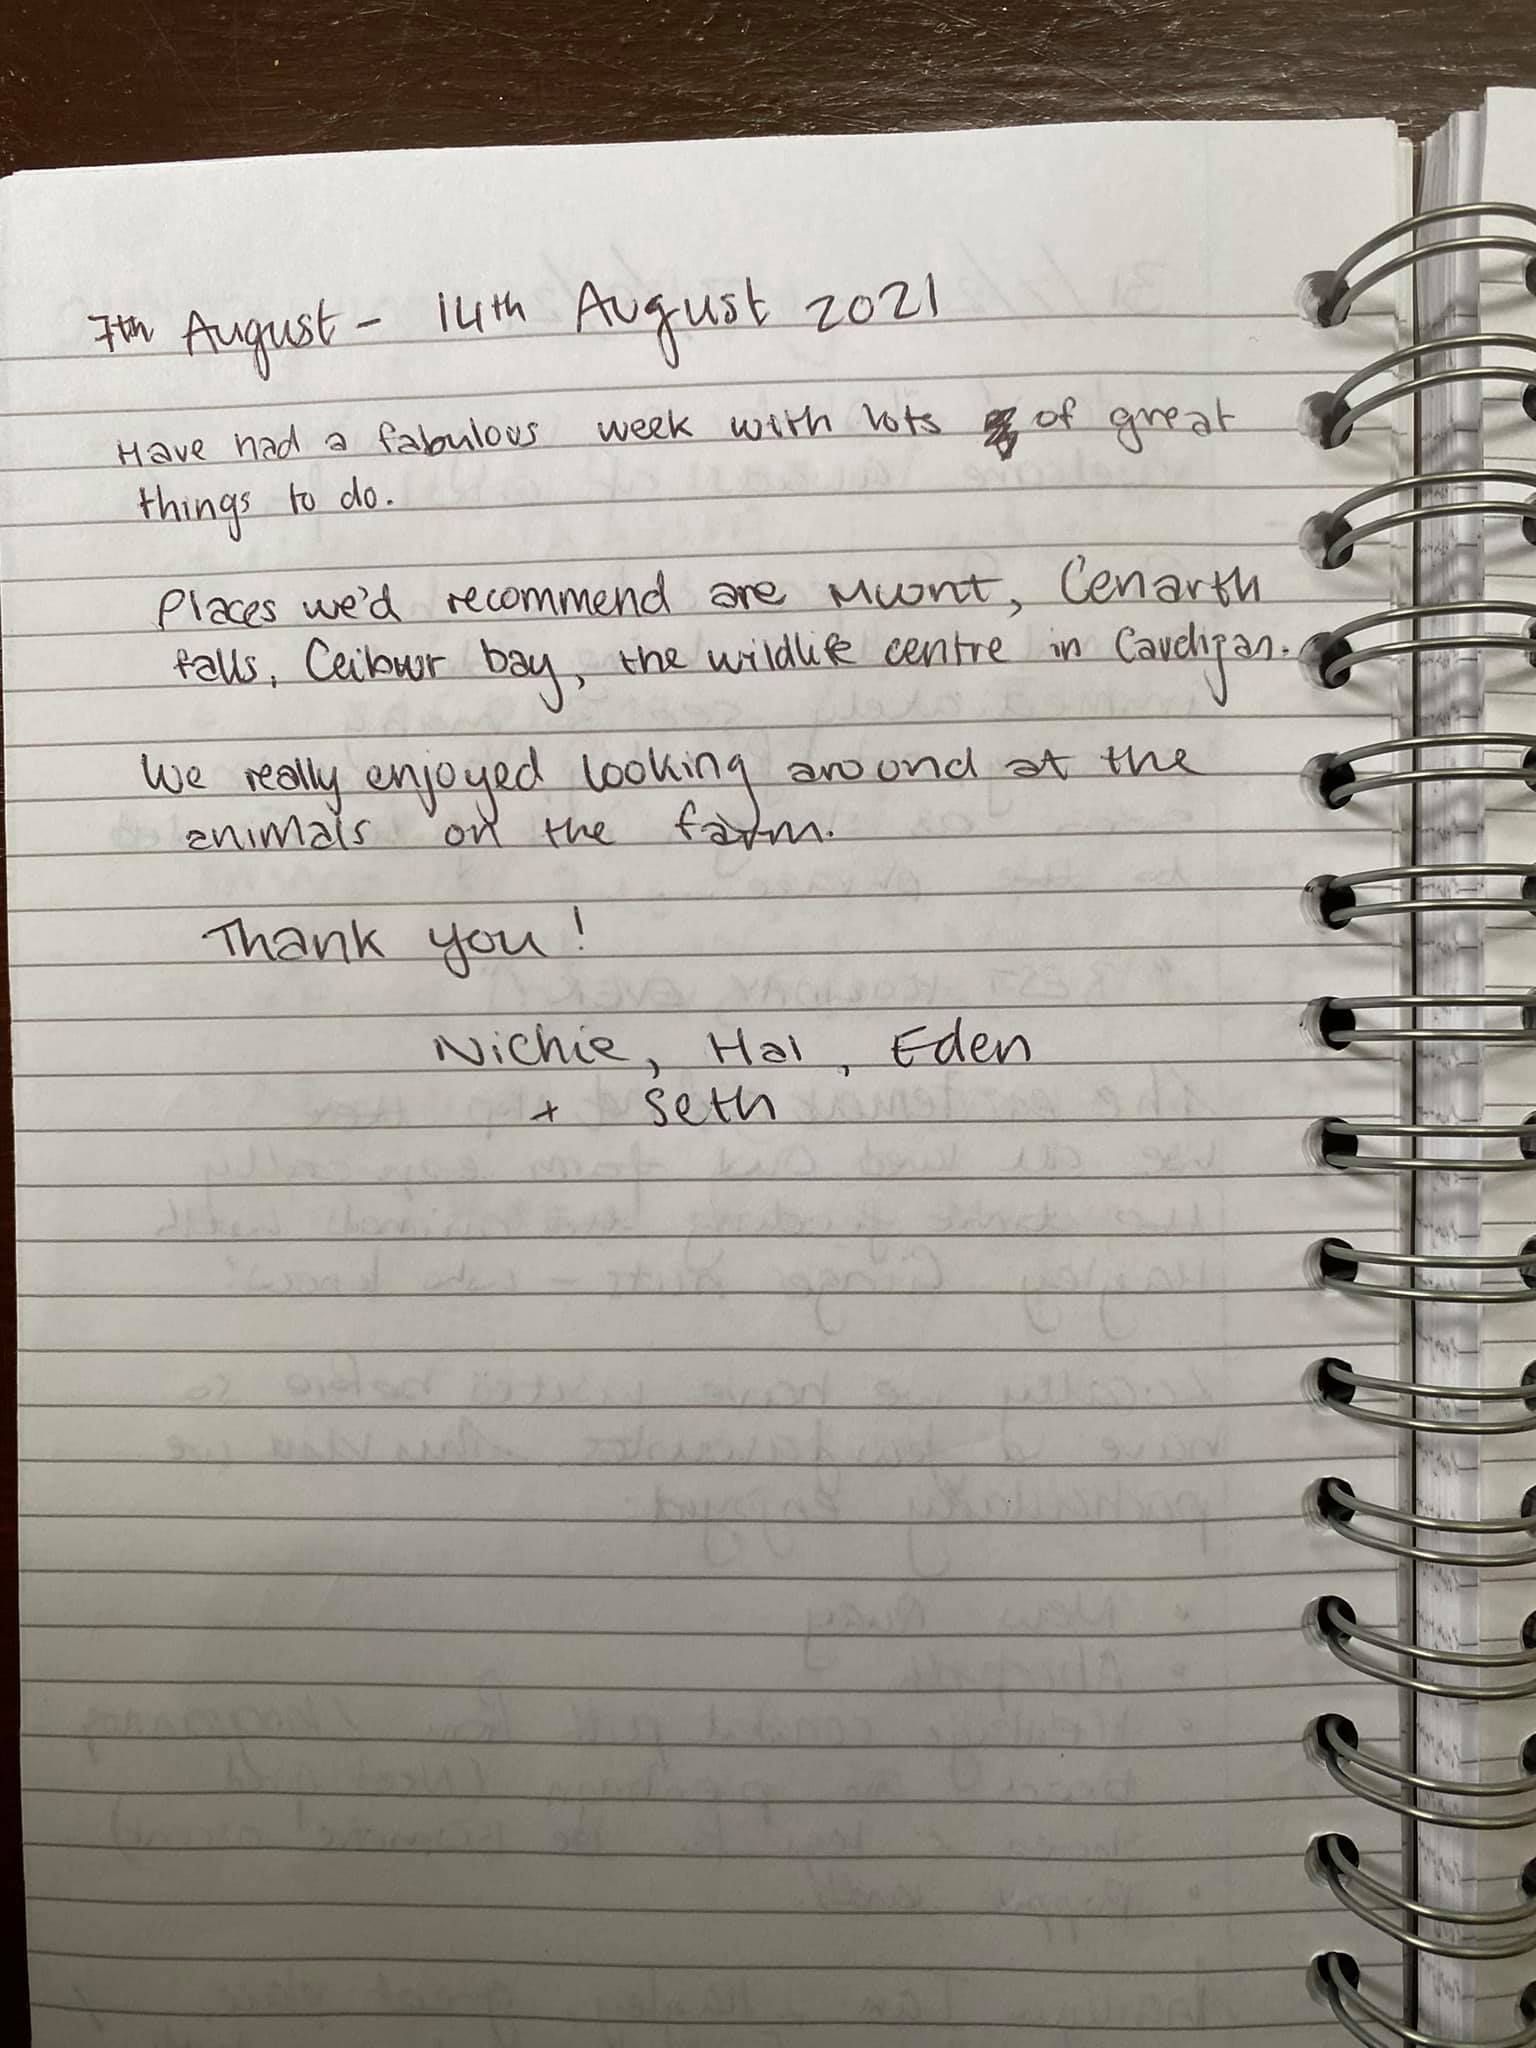 7th August - 14th August 2021
Have had a fabulous week with lots of great
things to do.
Places we'd recommend are Mwnt, Cenarth
falls, Ceibwr bay, the wildlife centre in Cardigan.
We really enjoyed looking around at the
animals on the farm.
Thank you!
Nichie, Hal, Eden
+ Seth